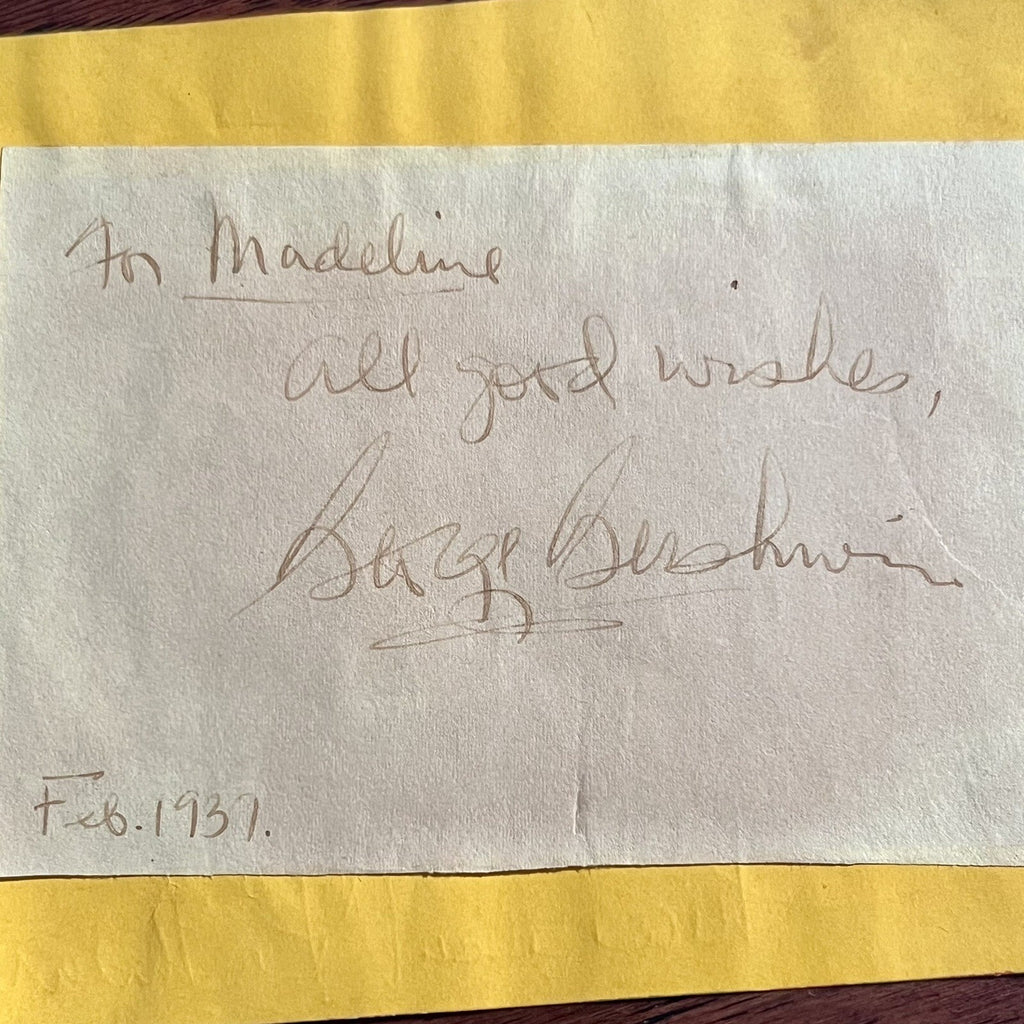 For Madeline
all good wishes,
George Gershwin
Feb. 1937.